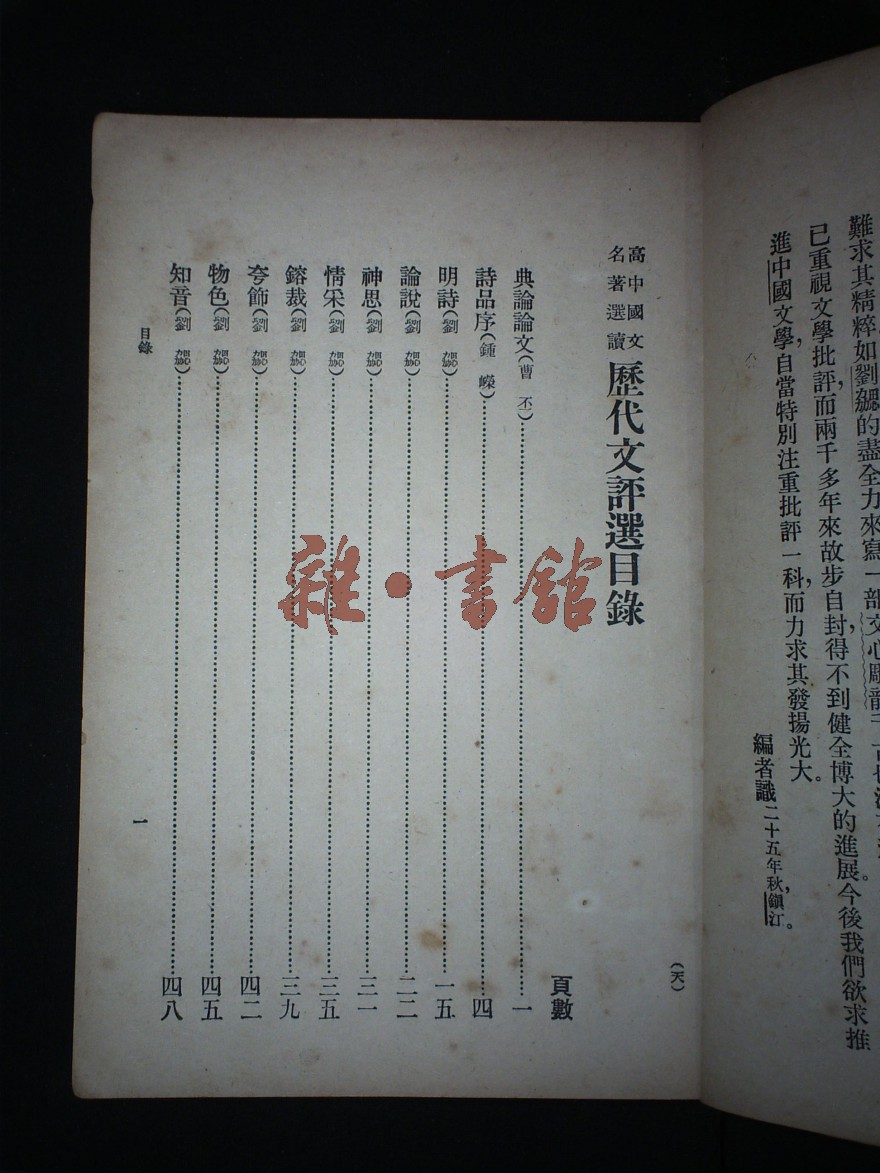 難求其精粹如劉勰的盡全力來寫一部文心雕龍
已重視文學批評,而兩千多年來故步自封,得不到健全博大的進展。今後我們欲求推
進中國文學,自當特別注重批評一科,而力求其發揚光大。
編者識二十五年秋,鎮江。
高中國文
名著選讀
歷代文評選目錄
(天)
頁數
典論論文(曹丕)……一
詩品序(鍾嶸)……四
明詩(劉勰)……一五
論說(劉勰)……二二
神思(劉勰)……三一
情采(劉勰)……三五
鎔裁(劉勰)……三九
夸飾(劉勰)……四二
物色(劉勰)……四五
知音(劉勰)……四八
目錄
一
雜·書館